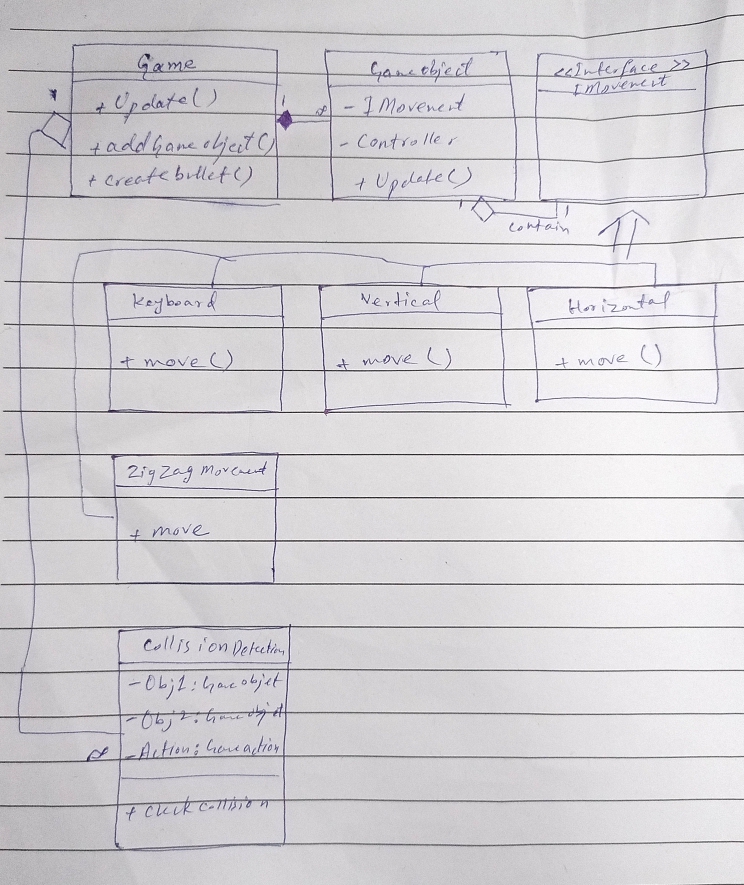 Game
+ Update()
+ addGameobject()
+ createbullet()
*
1
∞
Gameobject
- IMovement
- Controller
+ Update()
<<Interface>>
IMovement
1
1
contain
Keyboard
+ move()
Vertical
+ move()
Horizontal
+ move()
ZigZag Movement
+ move
Collision Detection
- Obj1: Gameobjet
- Obj2: Gameobjet
- Action: Gameaction
∞
+ Check collision